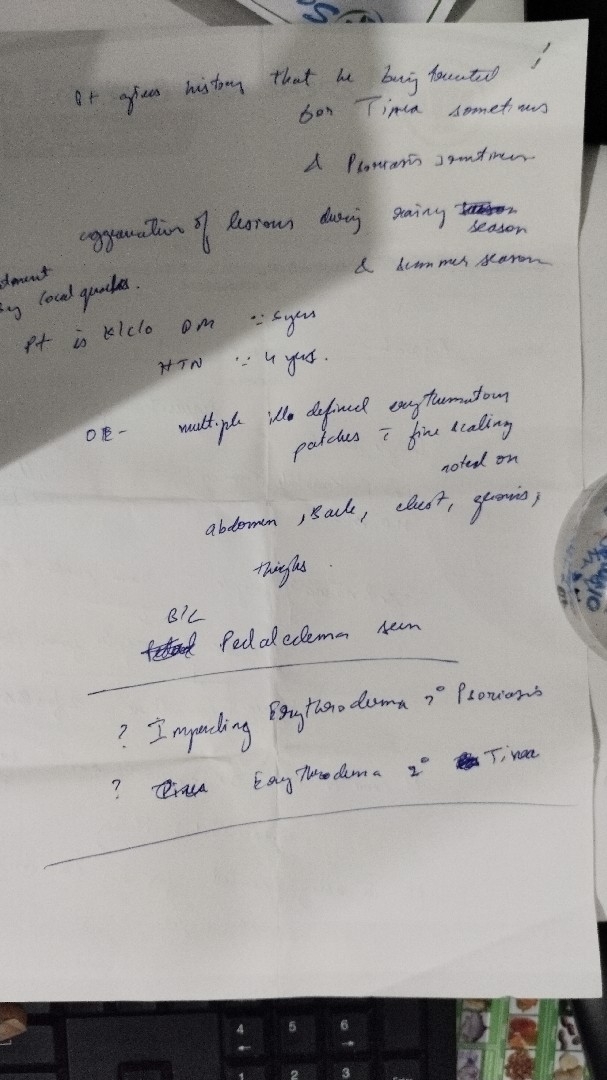 Pt gives history that he being treated
for Tinea sometimes
& Psoriasis sometimes
aggravation of lesions during rainy
season
& summer season
by local quacks.
Pt is K/C/O DM ∵ 5 yrs
HTN ∵ 4 yrs.
OE- multiple ill defined erythematous
patches c̄ fine scaling
noted on
abdomen, Back, chest,
thighs.
B/L
Pedal edema seen
? Impending Erythroderma 2° Psoriasis
? Erythroderma 2° Tinea
4 5 6
1 2 3